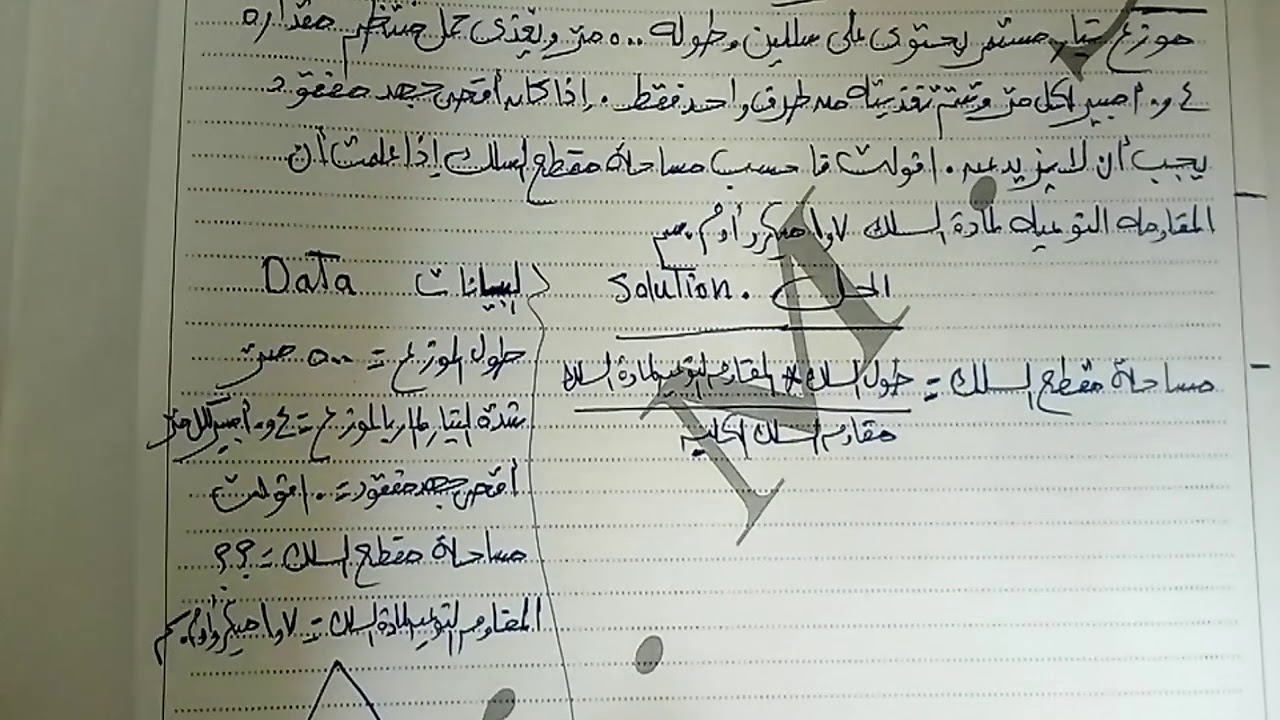 موزع تيار مستمر يحتوى على سلكين وطوله ٥٠٠ متر ويغذى حمل منتظم مقداره
٤و٠ أمبير لكل متر وتتم تغذيته من طرف واحد فقط. إذا كان أقصى جهد مفقود
يجب أن لا يزيد عن ١٠ فولت فاحسب مساحة مقطع السلك إذا علمت أن
المقاومة النوعية لمادة السلك ٧و١ ميكرو أوم.سم
الحل Solution.
مساحة مقطع السلك = طول السلك * المقاومة النوعية لمادة السلك
مقاومة السلك الكلية
البيانات Data
طول الموزع = ٥٠٠ متر
شدة التيار المار بالموزع = ٤و٠ أمبير لكل متر
أقصى جهد مفقود = ١٠ فولت
مساحة مقطع السلك = ؟؟
المقاومة النوعية لمادة السلك = ٧و١ ميكرو أوم.سم